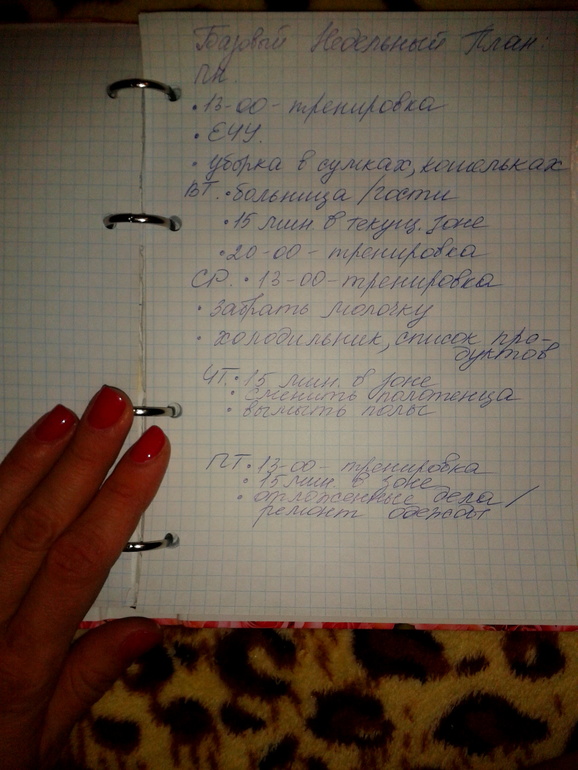 Базовый Недельный План:
ПН.
• 13-00 - тренировка
• ЕЧУ.
• уборка в сумках, кошельках
ВТ. • больница / гости
• 15 мин. в текущ. зоне
• 20-00 - тренировка
СР. • 13-00 - тренировка
• забрать молочку
• холодильник, список про-
дуктов
ЧТ. • 15 мин. в зоне
• сменить полотенца
• вымыть полы
ПТ. • 13-00 - тренировка
• 15 мин. в зоне
• отложенные дела /
ремонт одежды